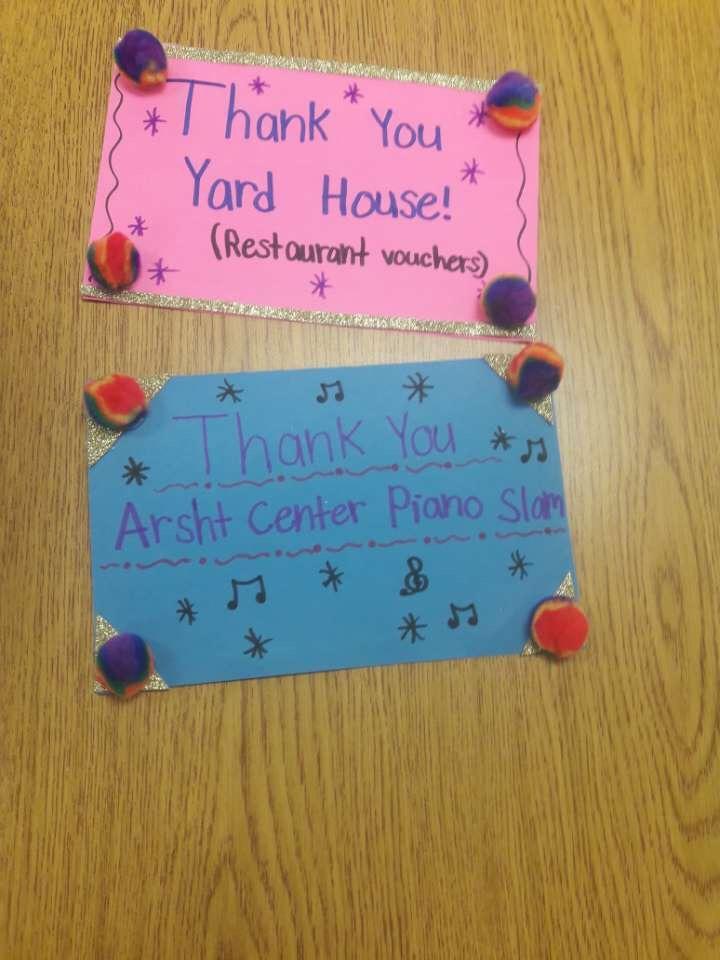 Thank You
Yard House!
(Restaurant vouchers)
Thank You
Arsht Center Piano Slam